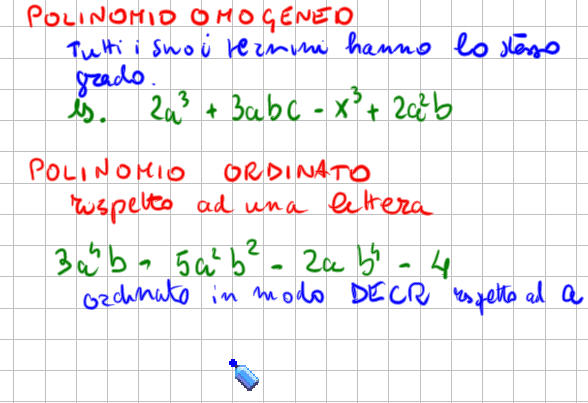 POLINOMIO OMOGENEO
Tutti i suoi termini hanno lo stesso
grado.
es. 2a³ + 3abc - x³ + 2a²b
POLINOMIO ORDINATO
rispetto ad una lettera
3a⁴b - 5a²b² - 2ab⁴ - 4
ordinato in modo DECR rispetto ad a